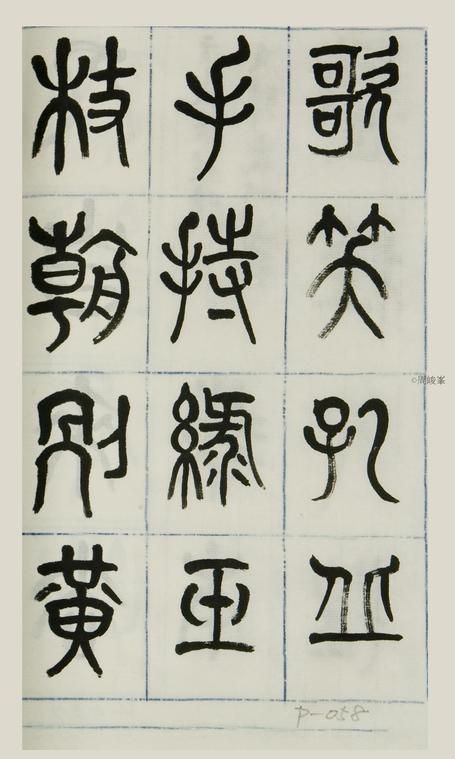 歌笑孔丘
手持綠玉
杖朝別黃
P-058